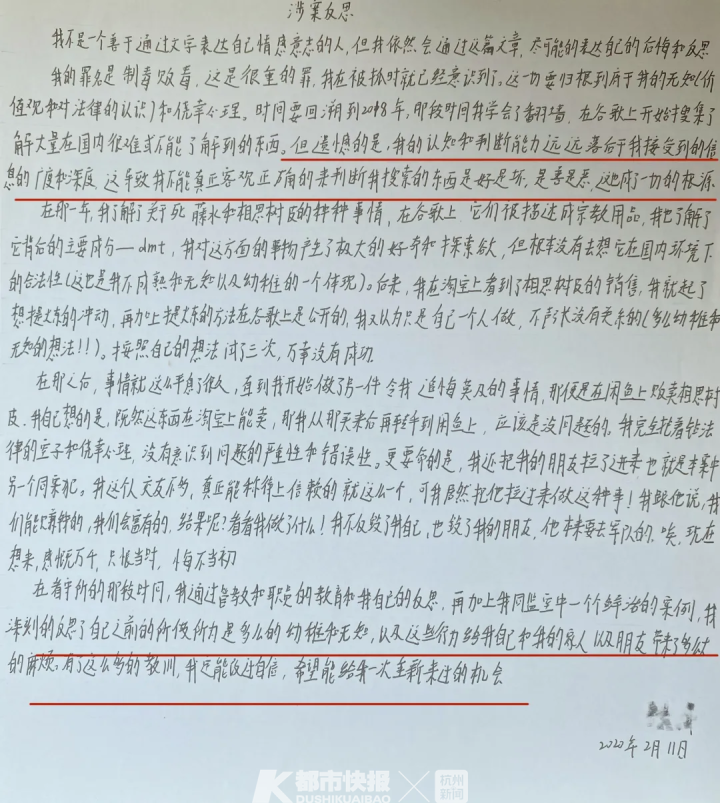 涉案反思
我不是一个善于通过文字表达自己情感意志的人，但我依然会通过这篇文章，尽可能的表达自己的后悔和反思
我的罪名是制毒贩毒，这是很重的罪，我在被抓时就已经意识到了。这一切要归根到底于我的无知（价
值观和对法律的认识）和侥幸心理。时间要回溯到2018年，那段时间我学会了翻墙，在谷歌上开始搜集了
解大量在国内很难或不能了解到的东西。但遗憾的是，我的认知和判断能力远远落后于我接受到的信
息的广度和深度，这导致我不能真正客观正确的来判断我搜索的东西是好是坏，是善是恶，这也成了一切的根源.
在那一年，我了解了关于死藤水和相思树皮的种种事情，在谷歌上它们被描述成宗教用品，我也了解了
它背后的主要成分—dmt，我对这方面的事物产生了极大的好奇和探索欲，但根本没有去想它在国内环境下
的合法性（这也是我不成熟和无知以及幼稚的一个体现）。后来，我在淘宝上看到了相思树皮的销售，我就起了
想提炼的冲动，再加上提炼的方法在谷歌上是公开的，我又认为只是自己一个人做，不声张没有关系的（多么幼稚和
无知的想法!!）。按照自己的想法试了三次，万幸没有成功
在那之后，事情就这么平息了很久，直到我开始做了另一件令我追悔莫及的事情，那便是在闲鱼上贩卖相思树
皮.我自己想的是，既然这东西在淘宝上能卖，那我从那买来后再转手到闲鱼上，应该是没问题的.我完全抱着钻法
律的空子和侥幸心理，没有意识到问题的严重性和错误性。更要命的是，我还把我的朋友拉了进来也就是本案中
另一个同案犯。我这个人交友不多，真正能称得上信赖的就这么一个，可我居然把他拉进来做这种事！我跟他说，我
们能赚钱的，我们会富有的，结果呢？看看我做了什么！我不仅毁了我自己，也毁了我的朋友，他本来要去军队的.唉，现在
想来，感慨万千，只恨当时，悔不当初
在看守所的那段时间，我通过管教和职员的教育和我自己的反思，再加上我同监室中一个鲜活的案例，我
深刻的反思了自己之前的所做所为是多么的幼稚和无知，以及这些行为给我自己和我的家人以及朋友带来了多大
的麻烦。有了这么多的教训，我定能改过自信，希望能给我一次重新来过的机会
2020年2月11日
都市快报
DUSHIKUAIBAO
杭州
新闻